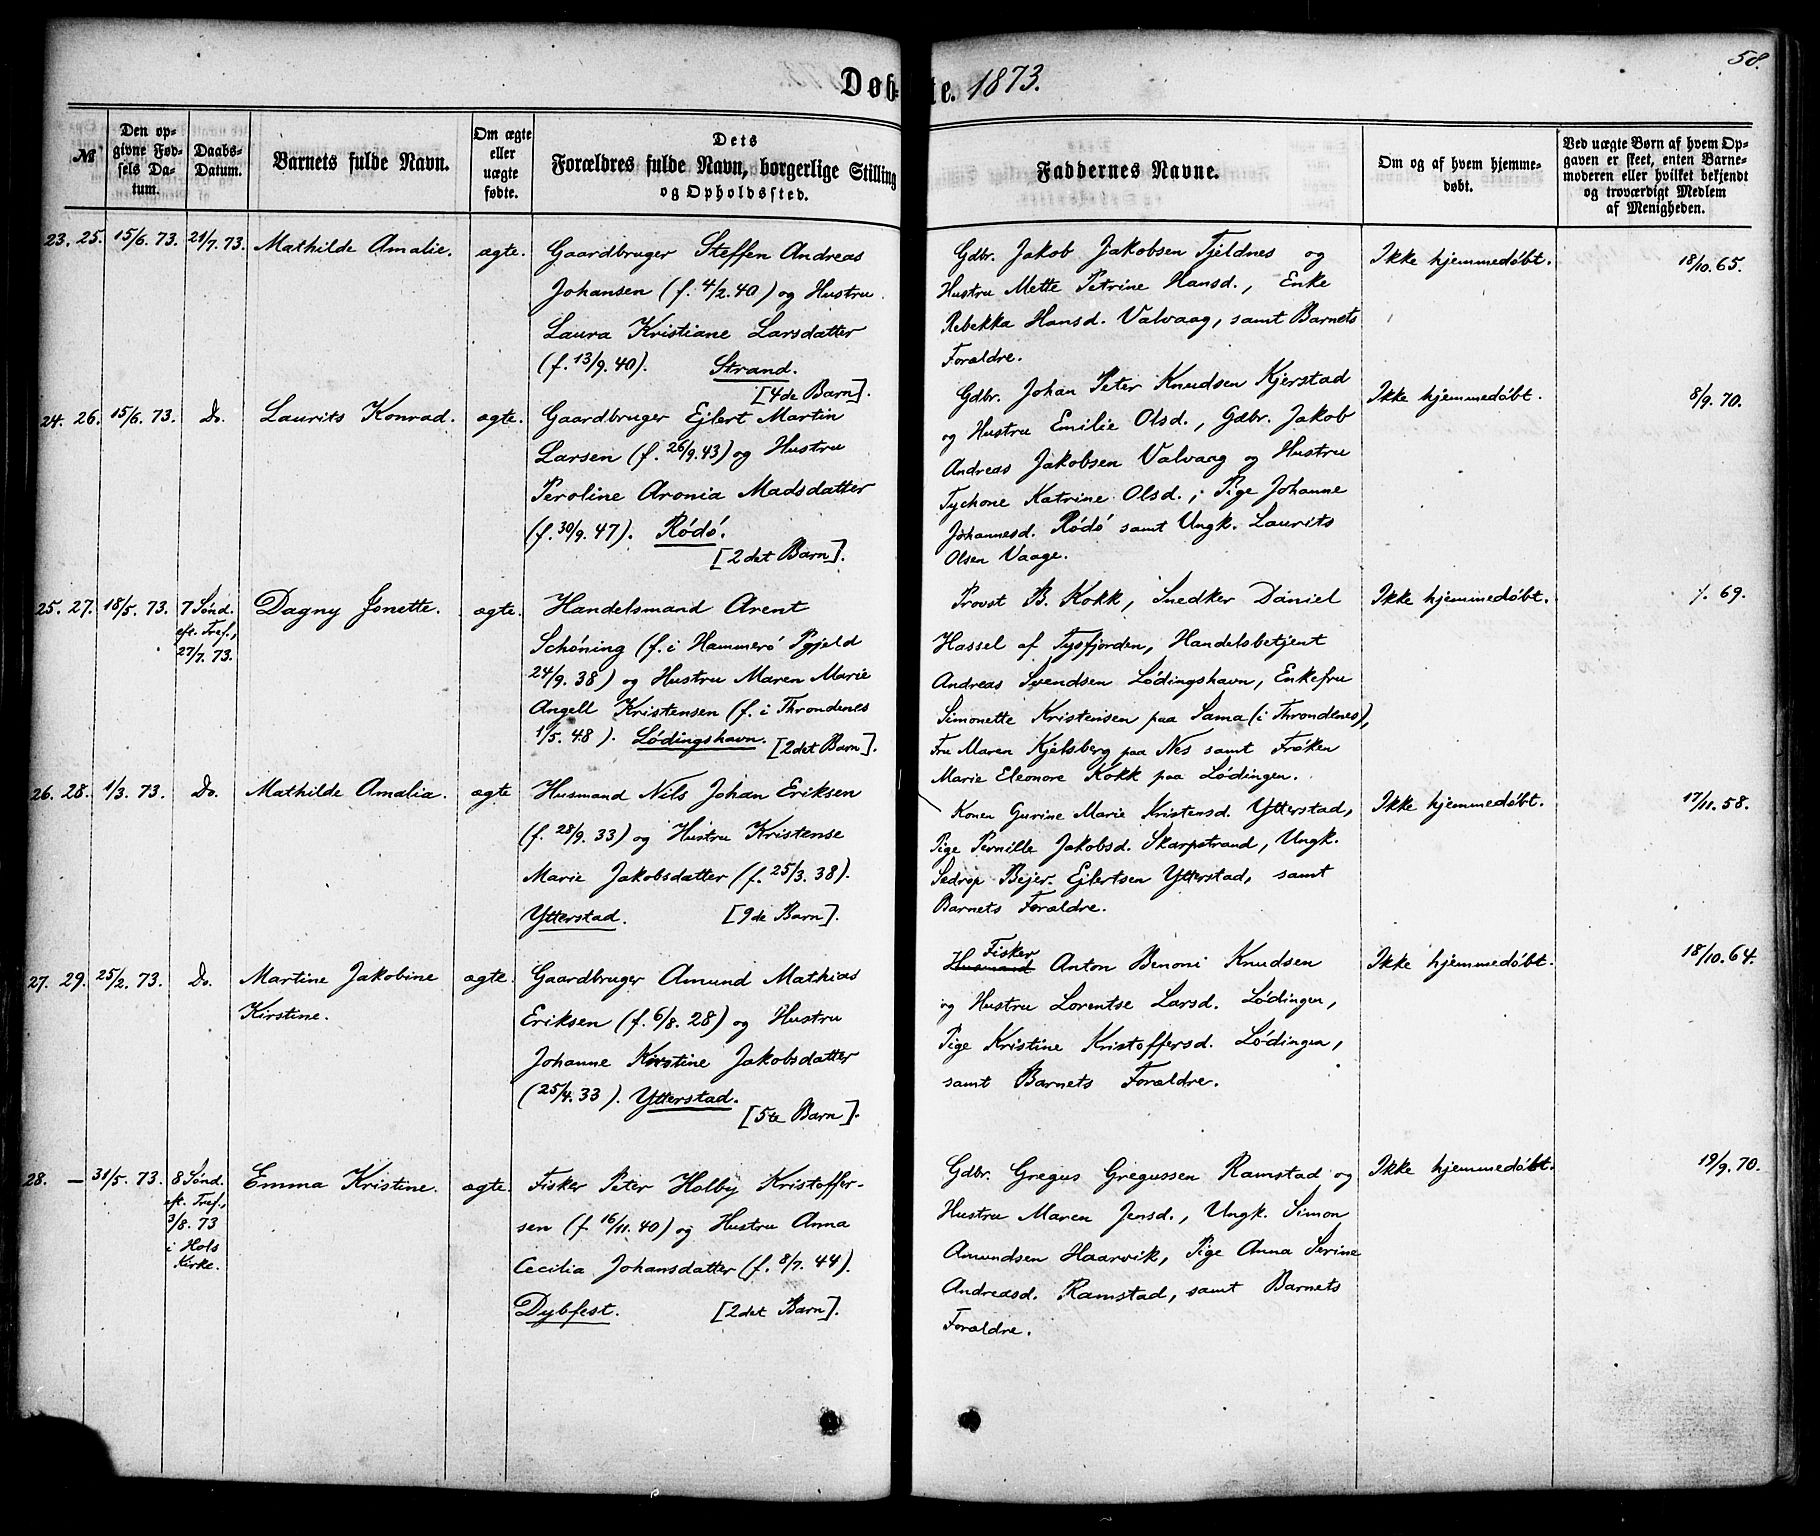 58.
Døbte. 1873.
№
Den opgivne Fødsels Datum.
Daabs-Datum.
Barnets fulde Navn.
Om ægte eller uægte fødte.
Dets Forældres fulde Navn, borgerlige Stilling og Opholdssted.
Faddernes Navne.
Om og af hvem hjemmedøbt.
Ved uægte Børn af hvem Opgaven er skeet, enten Barnemoderen eller hvilket bekjendt og troværdigt Medlem af Menigheden.
23. 25. 15/6. 73. 21/7. 73. Mathilde Amalie. ægte.
Gaardbruger Steffen Andreas
Johansen (f. 4/2. 40) og Hustru
Laura Kristiane Larsdatter
(f. 13/9. 40). Strand.
[4de Barn].
Gdbr. Jakob Jakobsen Fjeldnes og
Hustru Mette Petrine Hansd., Enke
Rebekka Hansd. Valvaag, samt Barnets
Forældre.
Ikke hjemmedøbt.
18/10. 65.
24. 26. 15/6. 73. Do. Laurits Konrad. ægte.
Gaardbruger Ejlert Martin
Larsen (f. 26/9. 43) og Hustru
Peroline Aronia Madsdatter
(f. 30/9. 47). Rødø.
[2det Barn].
Gdbr. Johan Peter Knudsen Kjerstad
og Hustru Emilie Olsd., Gdbr. Jakob
Andreas Jakobsen Valvaag og Hustru
Tychone Katrine Olsd., Pige Johanne
Johannesd. Rødø samt Ungk. Laurits
Olsen Vaage.
Ikke hjemmedøbt.
8/9. 70.
25. 27. 18/5. 73. 7 Sønd.
eft. Tref.,
27/7. 73.
Dagny Jonette. ægte.
Handelsmand Arent
Schøning (f. i Hammerø Pgjeld
24/9. 38) og Hustru Maren Marie
Angell Kristensen (f. i Throndenes
1/5. 48). Lødingshavn. [2det Barn].
Provst B. Kokk, Snedker Daniel
Hassel af Tysfjorden, Handelsbetjent
Andreas Svendsen Lødingshavn, Enkefru
Simonette Kristensen paa Sama (i Throndenes),
Fru Maren Kjelsberg paa Nes samt Frøken
Marie Eleonore Kokk paa Lødingen.
Ikke hjemmedøbt.
/. 69.
26. 28. 1/3. 73. Do. Mathilde Amalia. ægte
Husmand Nils Johan Eriksen
(f. 28/9. 33) og Hustru Kristense
Marie Jakobsdatter (f. 25/3. 38).
Ytterstad. [9de Barn].
Konen Gurine Marie Kristensd. Ytterstad,
Pige Pernille Jakobsd. Skarpstrand, Ungk.
Sedrop Bejer Ejlertsen Ytterstad, samt
Barnets Forældre.
Ikke hjemmedøbt.
17/11. 58.
27. 29. 25/2. 73. Do. Martine Jakobine
Kirstine.
ægte.
Gaardbruger Amund Mathias
Eriksen (f. 6/8. 28) og Hustru
Johanne Kirstine Jakobsdatter
(25/4. 33). Ytterstad.
[5te Barn].
Fisker
Husmand Anton Benoni Knudsen
og Hustru Lorentse Larsd. Lødingen,
Pige Kristine Kristoffersd. Lødingen,
samt Barnets Forældre.
Ikke hjemmedøbt.
18/10. 64.
28. — 31/5. 73. 8 Sønd.
eft. Tref.,
3/8. 73
i Hols
Kirke.
Emma Kristine. ægte.
Fisker Peter Holby Kristoffer-
sen (f 16/11. 40) og Hustru Anna
Cecilia Johansdatter (f. 8/7. 44).
Dybfest. [2det Barn].
Gdbr. Gregus Gregussen Ramstad og
Hustru Maren Jensd., Ungk. Simon
Amundsen Haarvik, Pige Anna Serine
Andreasd. Ramstad, samt Barnets
Forældre.
Ikke hjemmedøbt.
19/9. 70.